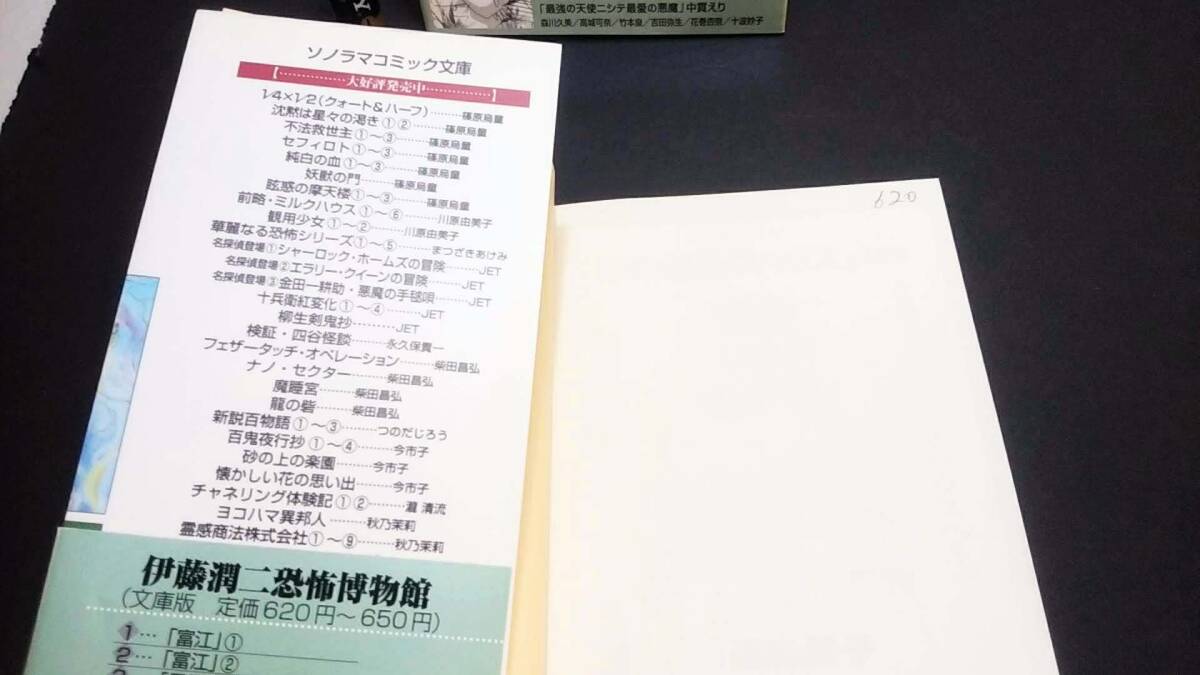 「最強の天使ニシテ最愛の悪魔」中貫えり
森川久美／高城可奈／竹本泉／吉田弥生／花巻杏奈／十波妙子
ソノラマコミック文庫
【……………大好評発売中……………】
1/4×1/2（クォート&ハーフ）………篠原烏童
沈黙は星々の渇き①②………篠原烏童
不法救世主①〜③………篠原烏童
セフィロト①〜③………篠原烏童
純白の血①〜③………篠原烏童
妖獣の門………篠原烏童
眩惑の摩天楼①〜③………篠原烏童
前略・ミルクハウス①〜⑥………川原由美子
観用少女①〜②………川原由美子
華麗なる恐怖シリーズ①〜⑤………まつざきあけみ
名探偵登場①シャーロック・ホームズの冒険………JET
名探偵登場②エラリー・クイーンの冒険………JET
名探偵登場③金田一耕助・悪魔の手毬唄………JET
十兵衛紅変化①〜④………JET
柳生剣鬼抄………JET
検証・四谷怪談………永久保貴一
フェザータッチ・オペレーション………柴田昌弘
ナノ・セクター………柴田昌弘
魔睡宮………柴田昌弘
龍の砦………柴田昌弘
新説百物語①〜③………つのだじろう
百鬼夜行抄①〜④………今市子
砂の上の楽園………今市子
懐かしい花の思い出………今市子
チャネリング体験記①②………瀧 清流
ヨコハマ異邦人………秋乃茉莉
霊感商法株式会社①〜⑨………秋乃茉莉
伊藤潤二恐怖博物館
（文庫版 定価620円〜650円）
1…「富江」①
2…「富江」②
620